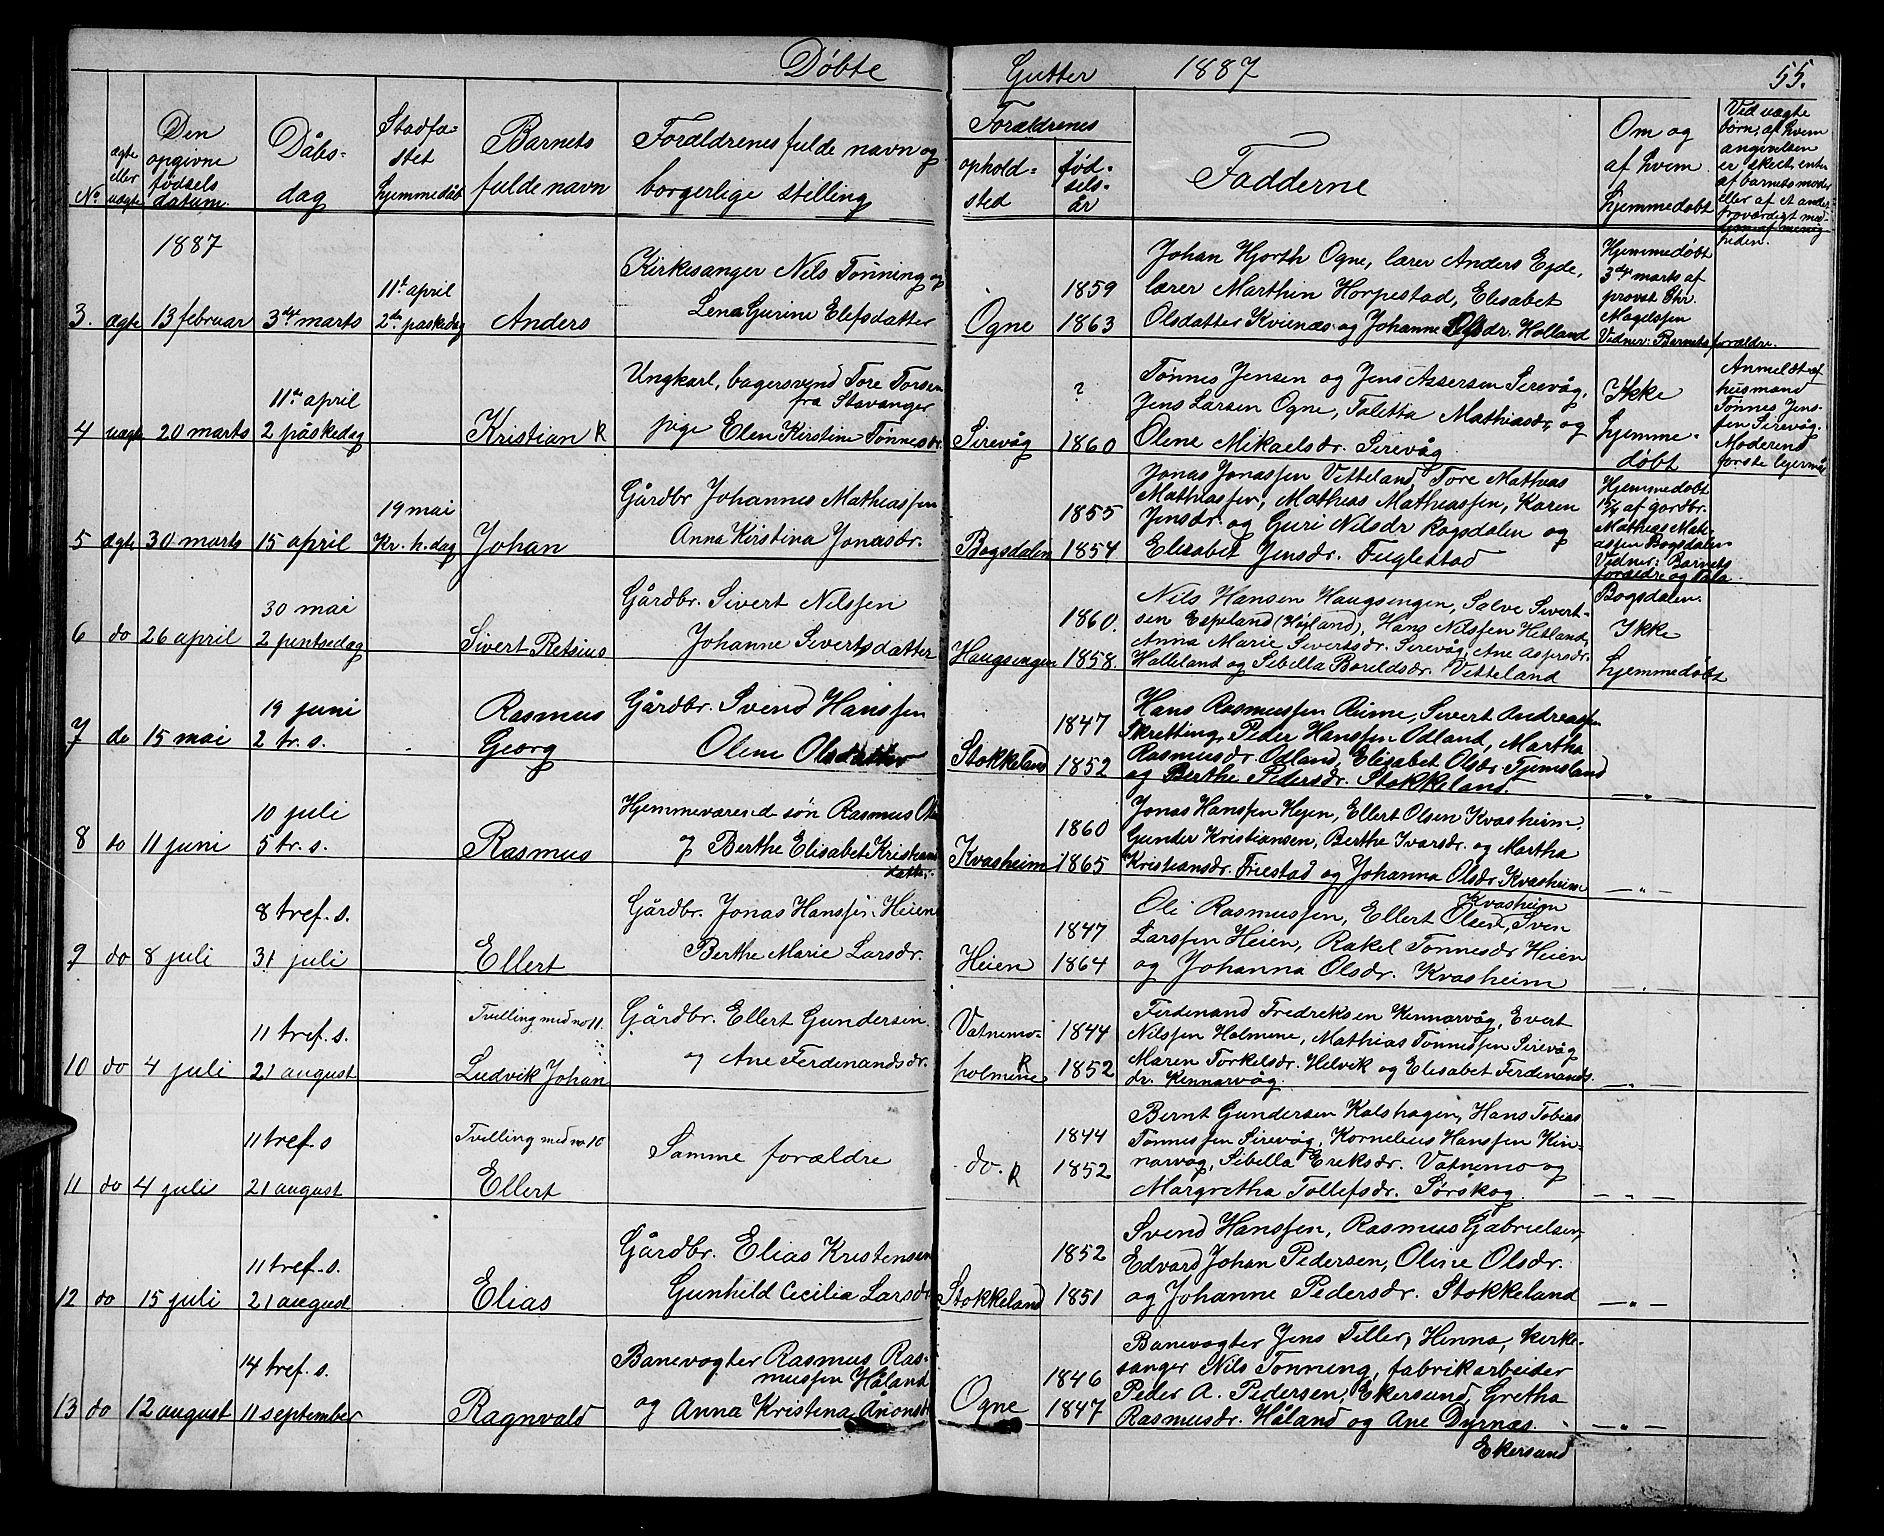 Døbte Gutter 1887 55.
No
ægte eller uægte
Den opgivne fødsels datum.
Dåbs-dag
Stadfæ-stet hjemmedåb
Barnets fulde navn
Forældrenes fulde navn og borgerlige stilling
Forældrenes
ophold-sted
fød-sels-år
Fadderne
Om og af hvem hjemmedøbt
Ved uægte børn, af hvem angivelsen er skeet, enten af barnets moder eller af et andet troværdigt med-lem af menig-heden.
1887
3. ægte 13 februar 3die marts
11te april
2den paskedag
Anders
Kirkesanger Nils Tønning og
Lena Gurine Elefsdatter
Ogne
1859
1863
Johan Hjorth Ogne, lærer Anders Eyde,
lærer Marthin Horpestad, Elisabet
Olsdatter Kvienæs og Johanne Olsdr. Holland
Hjemmedøbt
3die marts af
provst Chr.
Magelssen
Vidner: Barnets forældre.
4 uægte 20 marts
11te april
2 påskedag
Kristian R
Ungkarl, bagersvend Tore Torsen
fra Stavanger
pige Elen Kirstine Tønnesdr.
Sirevåg
?
1860
Tønnes Jensen og Jens Assersen Sirevåg,
Jens Larsen Ogne, Taletta Mathiasdr, og
Olene Mikaelsdr. Sirevåg
Ikke
hjemme-
døbt
Anmeldt af
husmand
Tønnes Jens-
sen Sirevåg.
Moderens
første lejermål
5 ægte 30 marts 15 april
19 mai
Kr. h. dag
Johan
Gårdbr Johannes Mathiassen
Anna Kirstina Jonasdr.
Bogsdalen
1855
1854
Jonas Jonassen Vetteland, Tore Mathias
Mathiassen, Mathias Mathiassen, Karen
Jensdr. og Guri Nilsdr Bogsdalen og
Elisabet Jensdr. Fuglestad
Hjemmedøbt
15/4 af gardbr.
Mathias Mat-
assen Bogsdalen
Vidner: Barnets
forældre og
Bogsdalen.
6 do 26 april
30 mai
2 pintsedag
Sivert Retsius
Gårdbr. Sivert Nilssen
Johanne Sivertsdatter
Haugsengen
1860.
1858.
Nils Hansen Haugsengen, Salve Sivert-
sen Espeland (Højland), Hans Nilssen Hetland,
Anna Marie Sivertsdr. Sirevåg, Ane Aspersdr.
Halleland og Sibilla Boreldsdr. Vetteland
Ikke
hjemmedøbt
7 do 15 mai
19 juni
2 tr. s.
Rasmus
Georg
Gårdbr. Svend Hanssen
Olene Olsdatter
Stokkeland
1847
1852
Hans Rasmussen Rime, Sivert Andreassen
Skretting, Peder Hanssen Odland, Martha
Rasmusdr. Odland, Elisabet Olsdr. Tjemsland
og Berthe Pedersdr. Stokkeland.
— „ —
8 do 11 juni
10 juli
5 tr. s.
Rasmus
Hjemmeværend søn Rasmus Ols
og Berthe Elisabet Kristians
datter.
Kvasheim
1860
1865
Jonas Hanssen Hejen, Ellert Olsen Kvasheim.
Gunder Kristiansen, Berthe Ivarsdr. og Martha
Kristiansdr. Friestad og Johanna Olsdr. Kvasheim
— „ —
9 do 8 juli
8 tref. s.
31 juli
Ellert
Gårdbr. Jonas Hanssen Heien
Berthe Marie Larsdr.
Heien
1847
1864
Kvasheim
Ole Rasmussen, Ellert Olsen, Sven
Larssen Heien, Rakel Tønnesdr Heien
og Johanna Olsdr. Kvasheim
— „ —
10 do 4 juli
11 tref. s.
21 august
Tvilling med no 11.
Ludvik Johan
Gårdbr. Ellert Gundersen
og Ane Ferdinandsdr.
Vatnemo-
holmene R
1844
1852
Ferdinand Fredreksen Kennarvåg, Evert
Nilssen Holmene, Mathias Tønnessen Sirevåg
Maren Torkelsdr. Helvik og Elisabet Ferdinands
dr. Kennarvåg.
— „ —
11 do 4 juli
11 tref. s
21 august
Tvilling med no 10
Ellert
Samme forældre
do. R
1844
1852
Bernt Gundersen Kalshagen, Hans Tobias
Tønnessen Sirevåg, Kornelius Hanssen Kin-
narvåg, Sibella Ereksdr. Vatnemo og
Margretha Tollefsdr. Sørskog.
— „ —
12 do 15 juli
11 tref. s.
21 august
Elias
Gårdbr. Elias Kristensen
Gunhild Cecilia Larsdr
Stokkeland
1852
1851
Svend Hanssen, Rasmus Gabrielsen,
Edvard Johan Pedersen, Oline Olsdr.
og Johanne Pedersdr. Stokkeland
— „ —
13 do 12 august
14 tref. s.
11 september
Ragnvald
Banevogter Rasmus Ras-
mussen Håland
og Anna Kristina Aronsdr
Ogne
1846
1847
Banevogter Jens Tiller, Hinna, kirke-
sanger Nils Tønning, fabrikarbeider
Peder A. Pedersen, Ekersund, Gretha
Rasmusdr. Håland og Ane Dyrnæs
Ekersund
— „ —